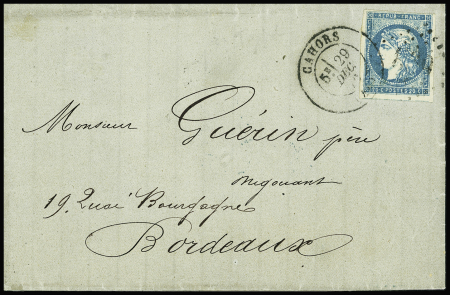 CAHORS
5E/
29
DEC
REPUB. FRANC.
20 C. POSTES 20 C.
Monsieur Guérin père
négociant
19. Quai Bourgogne
Bordeaux